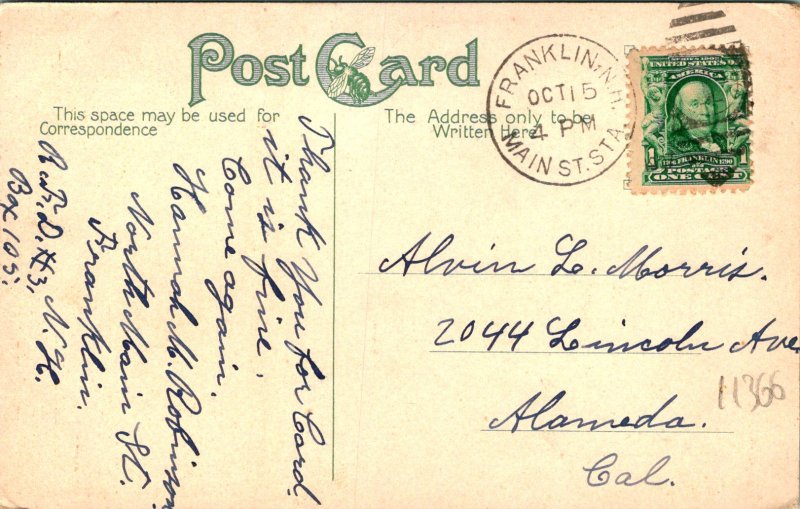 Post Card
This space may be used for
Correspondence
The Address only to be
Written Here
FRANKLIN, N.H.
OCT 15
4 PM
MAIN ST. STA.
SERIES 1902
UNITED STATES OF
AMERICA
1706 FRANKLIN 1790
POSTAGE
1 ONE CENT
Thank You for Card
it is fine.
Come again.
Hannah M. Robinson
North Main St.
Franklin.
N. H.
R. F. D. #3,
Box 105.
Alvin L. Morris.
2044 Lincoln Ave
Alameda.
Cal.
11366